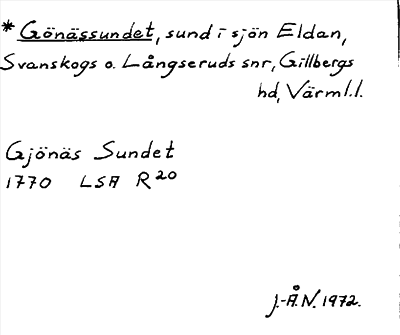 * Gönässundet, sund i sjön Eldan,
Svanskogs o. Långseruds snr, Gillbergs
hd, Värml.l.
Gjönäs Sundet
1770 LSA R20
J.-Å.N. 1972.